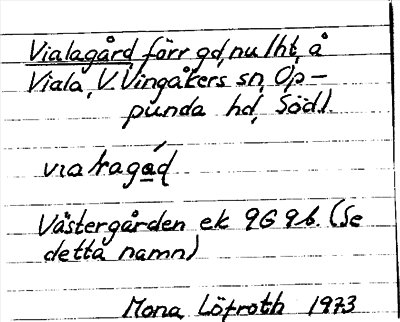 Vialagård förr gd, nu lht, å
Viala, V. Vingåkers sn, Op-
punda hd, Södl.
vıalragád
Västergården ek 9G 9b. (Se
detta namn)
Mona Löfroth 1973